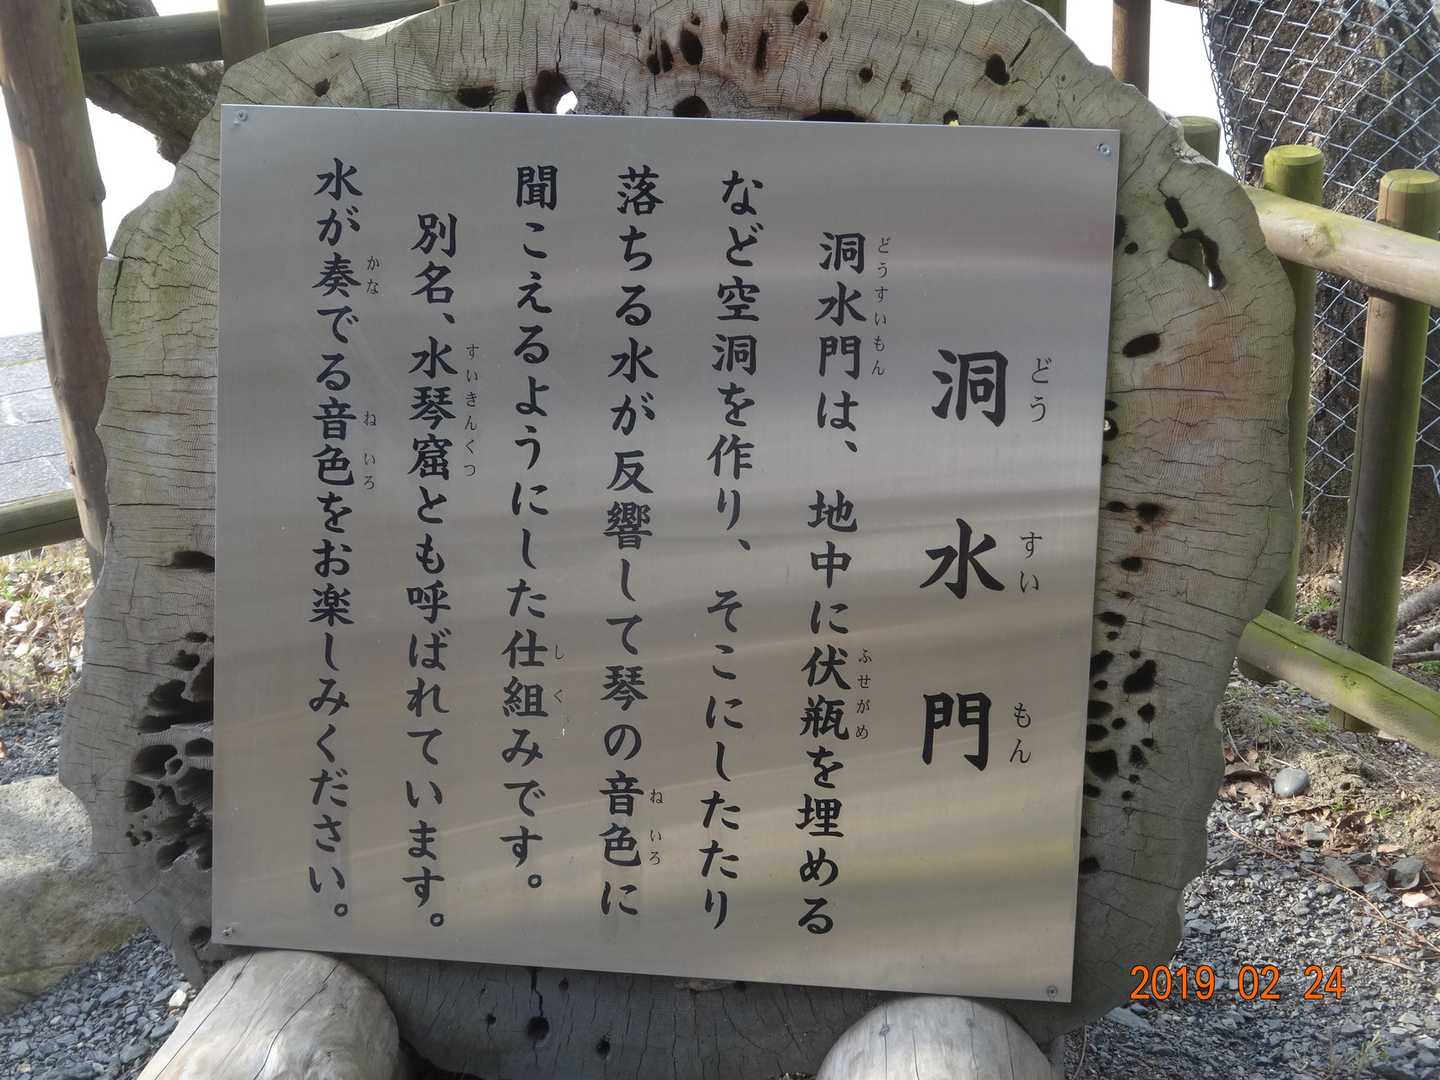 洞水門
どうすいもん
洞水門は、地中に伏瓶を埋める
どうすいもん
ふせがめ
など空洞を作り、そこにしたたり
落ちる水が反響して琴の音色に
ねいろ
聞こえるようにした仕組みです。
しく
別名、水琴窟とも呼ばれています。
すいきんくつ
水が奏でる音色をお楽しみください。
かな
ねいろ
2019 02 24